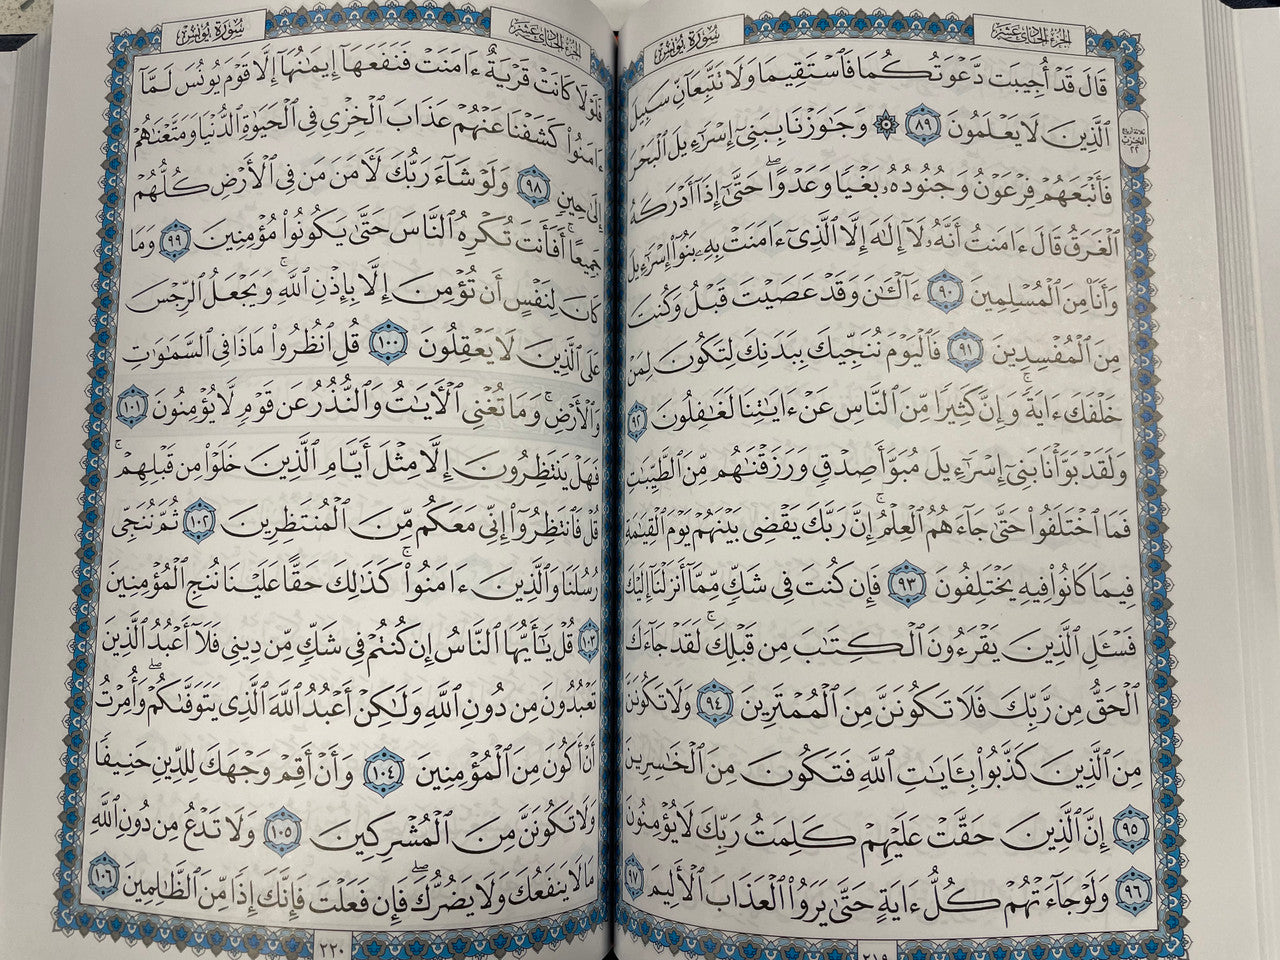 سُورَةُ يُونُسَ
الجُزْءُ الحَادِي عَشَرَ
قَالَ قَدْ أُجِيبَت دَّعْوَتُكُمَا فَٱسْتَقِيمَا وَلَا تَتَّبِعَآنِّ سَبِيلَ
ٱلَّذِينَ لَا يَعْلَمُونَ ٨٩ ۞ وَجَٰوَزْنَا بِبَنِىٓ إِسْرَٰٓءِيلَ ٱلْبَحْرَ
ثلاثة أرباع
الحزب
٢٢
فَأَتْبَعَهُمْ فِرْعَوْنُ وَجُنُودُهُۥ بَغْيًا وَعَدْوًا ۖ حَتَّىٰٓ إِذَآ أَدْرَكَهُ
ٱلْغَرَقُ قَالَ ءَامَنتُ أَنَّهُۥ لَآ إِلَٰهَ إِلَّا ٱلَّذِىٓ ءَامَنَتْ بِهِۦ بَنُوٓا۟ إِسْرَٰٓءِيلَ
وَأَنَا۠ مِنَ ٱلْمُسْلِمِينَ ٩٠ ءَآلْـَٰٔنَ وَقَدْ عَصَيْتَ قَبْلُ وَكُنتَ
مِنَ ٱلْمُفْسِدِينَ ٩١ فَٱلْيَوْمَ نُنَجِّيكَ بِبَدَنِكَ لِتَكُونَ لِمَنْ
خَلْفَكَ ءَايَةً ۚ وَإِنَّ كَثِيرًا مِّنَ ٱلنَّاسِ عَنْ ءَايَٰتِنَا لَغَٰفِلُونَ ٩٢
وَلَقَدْ بَوَّأْنَا بَنِىٓ إِسْرَٰٓءِيلَ مُبَوَّأَ صِدْقٍ وَرَزَقْنَٰهُم مِّنَ ٱلطَّيِّبَٰتِ
فَمَا ٱخْتَلَفُوا۟ حَتَّىٰ جَآءَهُمُ ٱلْعِلْمُ ۚ إِنَّ رَبَّكَ يَقْضِى بَيْنَهُمْ يَوْمَ ٱلْقِيَٰمَةِ
فِيمَا كَانُوا۟ فِيهِ يَخْتَلِفُونَ ٩٣ فَإِن كُنتَ فِى شَكٍّ مِّمَّآ أَنزَلْنَآ إِلَيْكَ
فَسْـَٔلِ ٱلَّذِينَ يَقْرَءُونَ ٱلْكِتَٰبَ مِن قَبْلِكَ ۚ لَقَدْ جَآءَكَ
ٱلْحَقُّ مِن رَّبِّكَ فَلَا تَكُونَنَّ مِنَ ٱلْمُمْتَرِينَ ٩٤ وَلَا تَكُونَنَّ
مِنَ ٱلَّذِينَ كَذَّبُوا۟ بِـَٔايَٰتِ ٱللَّهِ فَتَكُونَ مِنَ ٱلْخَٰسِرِينَ
٩٥ إِنَّ ٱلَّذِينَ حَقَّتْ عَلَيْهِمْ كَلِمَتُ رَبِّكَ لَا يُؤْمِنُونَ
٩٦ وَلَوْ جَآءَتْهُمْ كُلُّ ءَايَةٍ حَتَّىٰ يَرَوُا۟ ٱلْعَذَابَ ٱلْأَلِيمَ ٩٧
٢١٩
سُورَةُ يُونُسَ
الجُزْءُ الحَادِي عَشَرَ
فَلَوْلَا كَانَتْ قَرْيَةٌ ءَامَنَتْ فَنَفَعَهَآ إِيمَٰنُهَآ إِلَّا قَوْمَ يُونُسَ لَمَّآ
ءَامَنُوا۟ كَشَفْنَا عَنْهُمْ عَذَابَ ٱلْخِزْىِ فِى ٱلْحَيَوٰةِ ٱلدُّنْيَا وَمَتَّعْنَٰهُمْ
إِلَىٰ حِينٍ ٩٨ وَلَوْ شَآءَ رَبُّكَ لَـَٔامَنَ مَن فِى ٱلْأَرْضِ كُلُّهُمْ
جَمِيعًا ۚ أَفَأَنتَ تُكْرِهُ ٱلنَّاسَ حَتَّىٰ يَكُونُوا۟ مُؤْمِنِينَ ٩٩ وَمَا
كَانَ لِنَفْسٍ أَن تُؤْمِنَ إِلَّا بِإِذْنِ ٱللَّهِ ۚ وَيَجْعَلُ ٱلرِّجْسَ
عَلَى ٱلَّذِينَ لَا يَعْقِلُونَ ١٠٠ قُلِ ٱنظُرُوا۟ مَاذَا فِى ٱلسَّمَٰوَٰتِ
وَٱلْأَرْضِ ۚ وَمَا تُغْنِى ٱلْـَٔايَٰتُ وَٱلنُّذُرُ عَن قَوْمٍ لَّا يُؤْمِنُونَ ١٠١
فَهَلْ يَنتَظِرُونَ إِلَّا مِثْلَ أَيَّامِ ٱلَّذِينَ خَلَوْا۟ مِن قَبْلِهِمْ ۚ
قُلْ فَٱنتَظِرُوٓا۟ إِنِّى مَعَكُم مِّنَ ٱلْمُنتَظِرِينَ ١٠٢ ثُمَّ نُنَجِّى
رُسُلَنَا وَٱلَّذِينَ ءَامَنُوا۟ ۚ كَذَٰلِكَ حَقًّا عَلَيْنَا نُنجِ ٱلْمُؤْمِنِينَ
١٠٣ قُلْ يَٰٓأَيُّهَا ٱلنَّاسُ إِن كُنتُمْ فِى شَكٍّ مِّن دِينِى فَلَآ أَعْبُدُ ٱلَّذِينَ
تَعْبُدُونَ مِن دُونِ ٱللَّهِ وَلَٰكِنْ أَعْبُدُ ٱللَّهَ ٱلَّذِى يَتَوَفَّىٰكُمْ ۖ وَأُمِرْتُ
أَنْ أَكُونَ مِنَ ٱلْمُؤْمِنِينَ ١٠٤ وَأَنْ أَقِمْ وَجْهَكَ لِلدِّينِ حَنِيفًا
وَلَا تَكُونَنَّ مِنَ ٱلْمُشْرِكِينَ ١٠٥ وَلَا تَدْعُ مِن دُونِ ٱللَّهِ
مَا لَا يَنفَعُكَ وَلَا يَضُرُّكَ ۖ فَإِن فَعَلْتَ فَإِنَّكَ إِذًا مِّنَ ٱلظَّٰلِمِينَ ١٠٦
٢٢٠